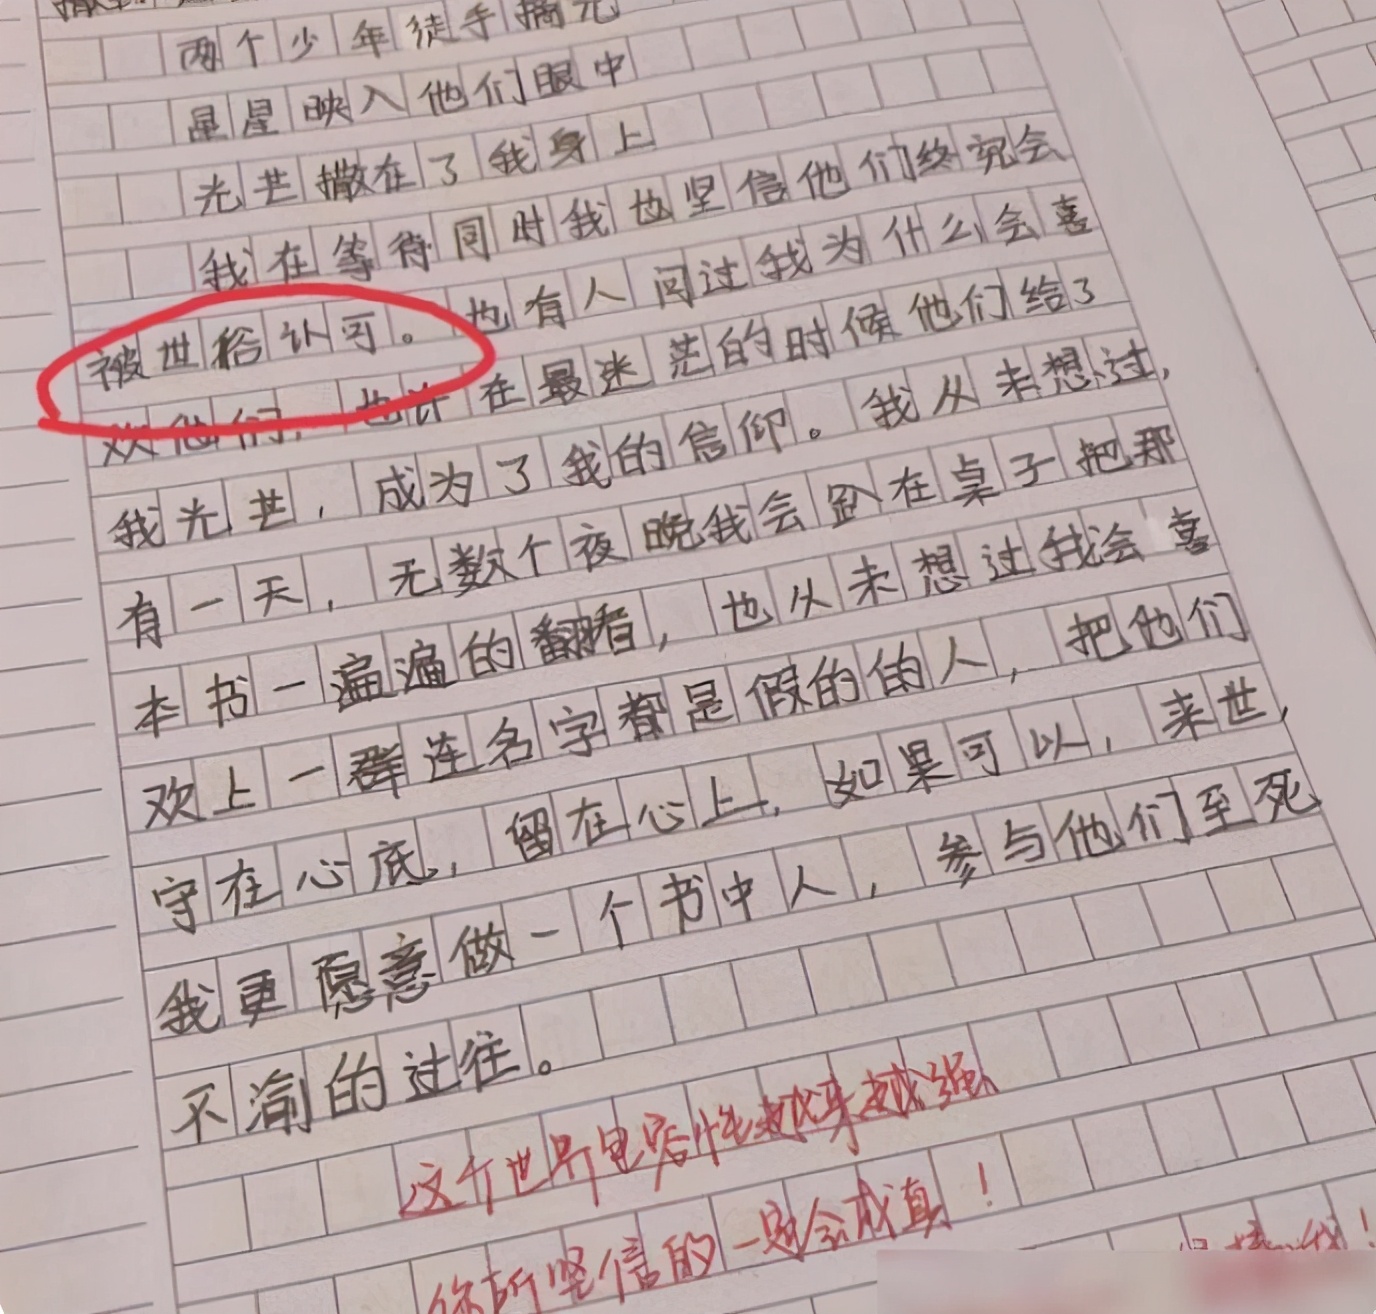 两个少年徒手摘光
星星映入他们眼中
光芒撒在了我身上
我在等待同时我也坚信他们终究会
被世俗认可。也有人问过我为什么会喜
欢他们，也许在最迷茫的时候他们给了
我光芒，成为了我的信仰。我从未想过，
有一天，无数个夜晚我会趴在桌子把那
本书一遍遍的翻看，也从未想过我会喜
欢上一群连名字都是假的的人，把他们
守在心底，留在心上，如果可以，来世，
我更愿意做一个书中人，参与他们至死
不渝的过往。
这个世界包容性越来越强
你所坚信的一定会成真！